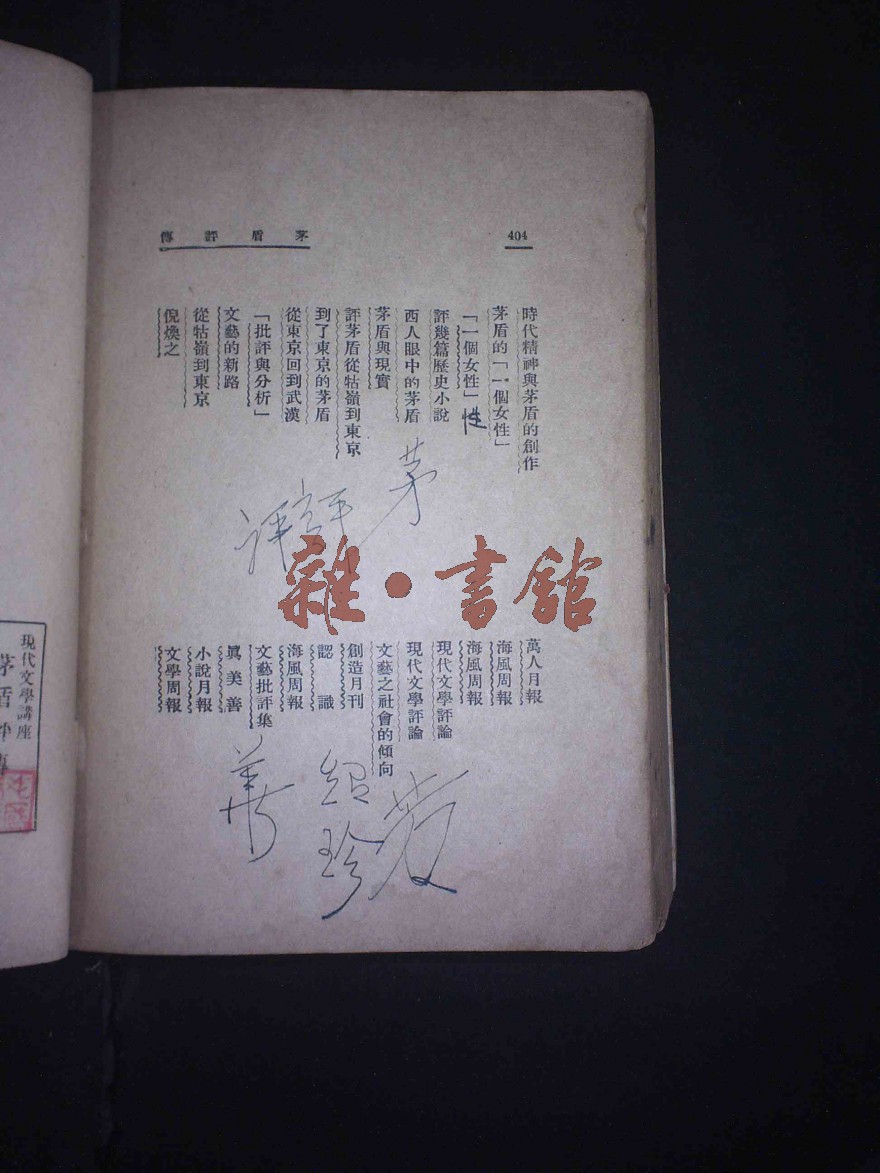 404
茅盾評傳
時代精神與茅盾的創作
茅盾的「一個女性」
「一個女性」
性
評幾篇歷史小說
西人眼中的茅盾
茅盾與現實
評茅盾從牯嶺到東京
到了東京的茅盾
從東京回到武漢
「批評與分析」
文藝的新路
從牯嶺到東京
倪煥之
茅
評
评
萬人月報
海風周報
海風周報
現代文學評論
現代文學評論
文藝之社會的傾向
創造月刊
認識
海風周報
文藝批評集
眞美善
小說月報
文學周報
紹
珍
雜·書館
現代文學講座
茅盾評傳